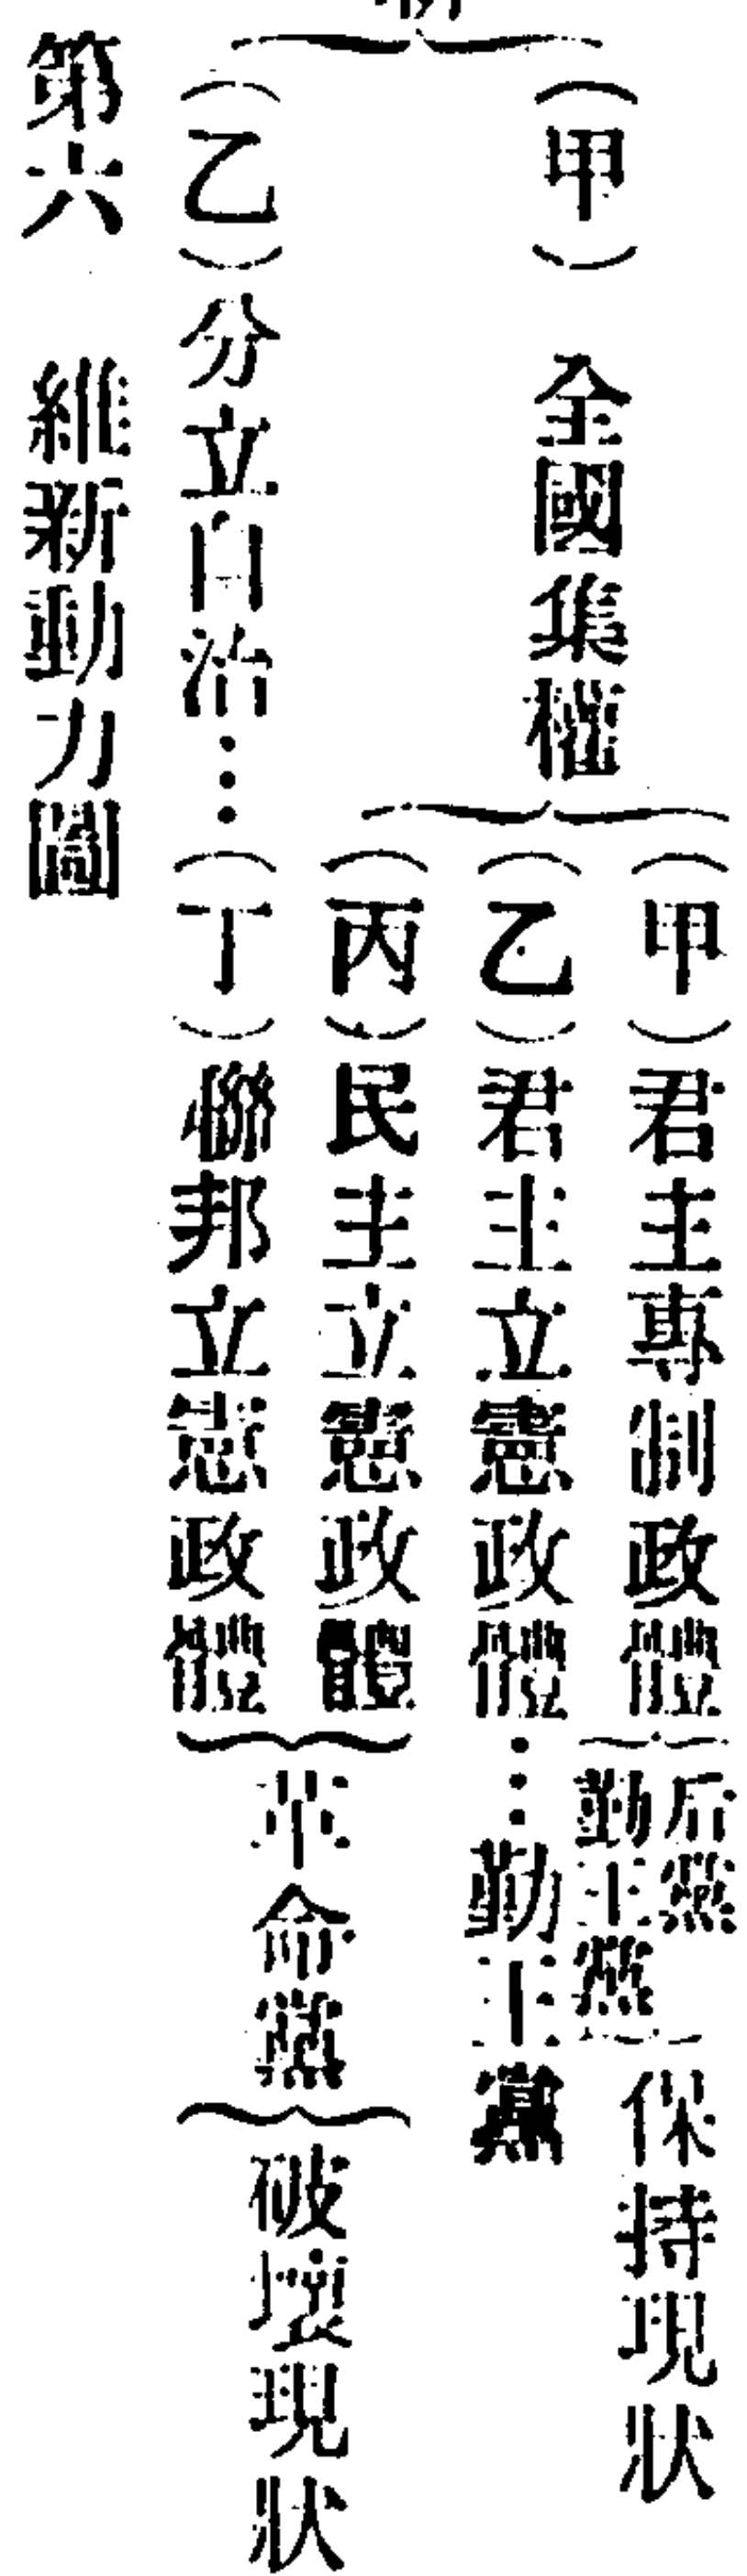 （甲）　全國集權
（甲）君主專制政體
后黨
勤王黨
保持現狀
（乙）君主立憲政體…勤王黨
（丙）民主立憲政體
（乙）分立自治…（丁）聯邦立憲政體
革命黨
破壞現狀
第六　維新動力圖